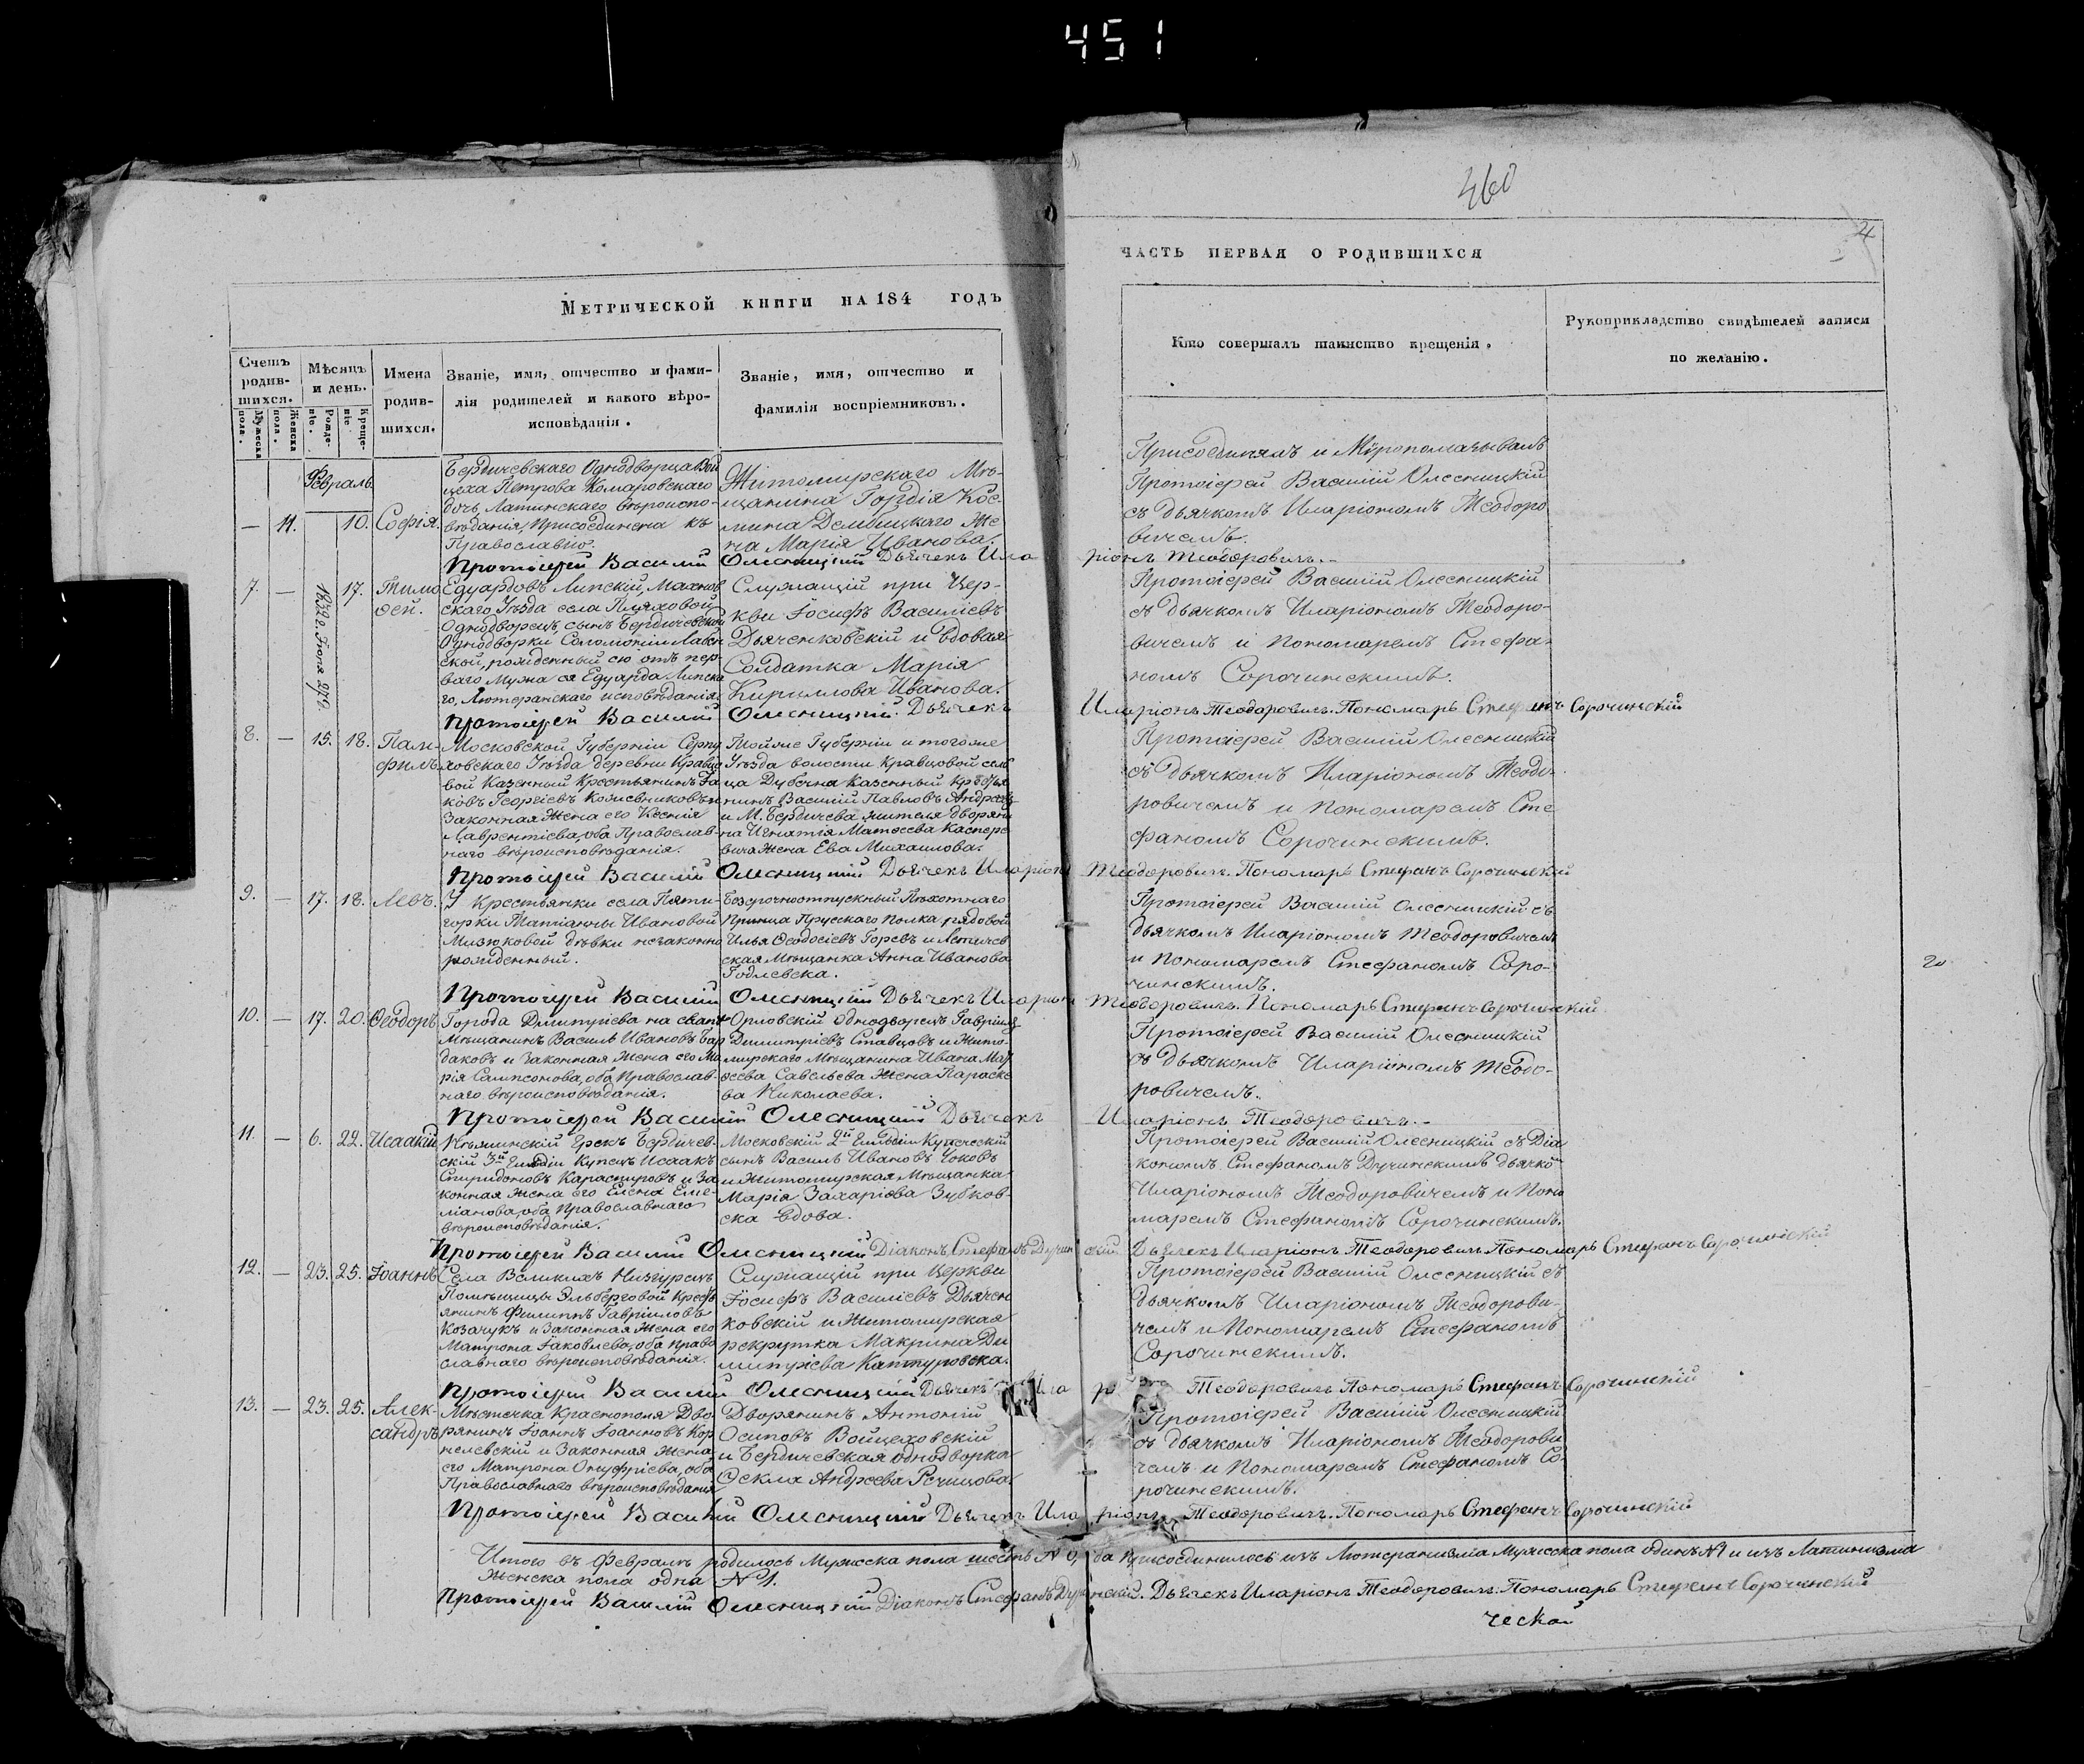 451
460
4
Метрической книги на 184 годъ
часть первая о родившихся
Счетъ родившихся.
Мужеска пола.
Женска пола.
Мѣсяцъ и день.
Рожденіе.
Крещеніе.
Имена родившихся.
Званіе, имя, отчество и фамилія родителей и какого вѣроисповѣданія.
Званіе, имя, отчество и фамилія воспріемниковъ.
Кто совершалъ таинство крещенія.
Рукоприкладство свидѣтелей записи по желанію.
Февраль
— 11. 10. Софія.
Бердичевскаго Однодворца Вой
цеха Петрова Комаровскаго
дочь, Латинскаго вѣроиспо-
вѣданія, присоединена къ
Православію.
Житомирскаго Мѣ-
щанина Гордія Кос-
мина Дембицкаго Же
на Марія Иванова.
Присоединялъ и Мѵропомазывалъ
Протоіерей Василій Олесницкій
съ дьячкомъ Иларіономъ Теодоро
вичемъ.
Протоіерей Василій Олесницкій Дьячекъ Иларіонъ Теодоровичъ.
7. — 1832 г. Іюля 27 17. Тимо
ѳей.
Едуардовъ Липскій, Махнов
скаго Уѣзда села Пляховой
Однодворецъ, сынъ Бердичевской
Однодворки Соломоніи
ской, рожденный ею отъ пер-
ваго Мужа ея Едуарда Липска
го, Лютеранскаго исповѣданія.
Служащій при Цер-
кви Іосифъ Василіевъ
Дьяченковскій и вдовая
Солдатка Марія
Кириллова Иванова.
Протоіерей Василій Олесницкій
съ дьячкомъ Иларіономъ Теодоро-
вичемъ и Пономаремъ Стефа-
номъ Сорочинскимъ.
Протоіерей Василій Олесницкій. Дьячекъ Иларіонъ Теодоровичъ. Пономарь Стефанъ Сорочинскій
8. — 15. 18. Пам-
филъ
Московской Губерніи Серпу
ховскаго Уѣзда деревни Кравцо
вой Казенный Крестьянинъ Іа
ковъ Георгіевъ Кожевниковъ и
Законная Жена его Ксенія
Лаврентіева, оба Православ-
наго вѣроисповѣданія.
Тойже Губерніи и тогоже
Уѣзда волости Кравцовой сель
ца Дубечна Казенный Крестья
нинъ Василій Павловъ Андреевъ
и М. Бердичева жителя дворяни
на Игнатія Матѳеева Каспере
вича Жена Ева Михаилова.
Протоіерей Василій Олесницкій
съ дьячкомъ Иларіономъ Теодо-
ровичемъ и Пономаремъ Сте
фаномъ Сорочинскимъ.
Протоіерей Василій Олесницкій Дьячекъ Иларіонъ Теодоровичъ. Пономарь Стефанъ Сорочинскій
9. — 17. 18. Левъ.
У Крестьянки села Пяти-
горки Татіанны Ивановой
Мизюковой дѣвки незаконно
рожденный.
Безсрочноотпускный Пѣхотнаго
Принца Прусскаго Полка рядовой
Илья Ѳеодосіевъ Горевъ и Летичев
ская Мѣщанка Анна Иванова
Годлевска.
Протоіерей Василій Олесницкій съ
дьячкомъ Иларіономъ Теодоровичемъ
и Пономаремъ Стефаномъ Соро-
чинскимъ.
Протоіерей Василій Олесницкій Дьячекъ Иларіонъ Теодоровичъ. Пономарь Стефанъ Сорочинскій.
10. — 17. 20. Ѳеодоръ
Города Димитріева на свапѣ
Мѣщанинъ Василь Ивановъ Бар
даковъ и Законная Жена его Ма
рія Сампсонова, оба Православ-
наго вѣроисповѣданія.
Орловскій Однодворецъ Гавріилъ
Димитріевъ Ставцовъ и Жито-
мирскаго Мѣщанина Ивана Мат
ѳеева Савельева Жена Параске
ва Николаева.
Протоіерей Василій Олесницкій
съ дьячкомъ Иларіономъ Теодо-
ровичемъ.
Протоіерей Василій Олесницкій Дьячекъ Иларіонъ Теодоровичъ.
11. — 6. 22. Исаакій
Нѣжинскій Грекъ Бердичев-
скій 3й Гильдіи Купецъ Исаакъ
Спиридоновъ Карасмировъ и За
конная Жена его Елена Еме-
ліанова, оба Православнаго
вѣроисповѣданія.
Московскій 2й Гильдіи Купеческій
сынъ Василь Ивановъ Чоковъ
и Житомирская Мѣщанка
Марія Захаріева Зубков-
ска вдова.
Протоіерей Василій Олесницкій съ Діа
кономъ Стефаномъ Дучинскимъ дьячком
Иларіономъ Теодоровичемъ и Поно
маремъ Стефаномъ Сорочинскимъ.
Протоіерей Василій Олесницкій Діаконъ Стефанъ Дучинскій Дьячекъ Иларіонъ Теодоровичъ Пономарь Стефанъ Сорочинскій
12. — 23. 25. Іоаннъ
Села Великихъ Низгурецъ
Помѣщицы Эльберговой Кресть
янинъ Филиппъ Гавріиловъ
Козачукъ и Законная Жена его
Матрона Іаковлева, оба Право
славнаго вѣроисповѣданія.
Служащій при Церкви
Іосифъ Василіевъ Дьячен
ковскій и Житомирская
рекрутка Макрина Ди
митріева Кантуровска.
Протоіерей Василій Олесницкій съ
дьячкомъ Иларіономъ Теодорови-
чемъ и Пономаремъ Стефаномъ
Сорочинскимъ.
Протоіерей Василій Олесницкій Дьячекъ Теодоровичъ Пономарь Стефанъ Сорочинскій
13. — 23. 25. Алек-
сандръ
Мѣстечка Краснополя Дво-
рянинъ Іоаннъ Іоанновъ Кор
нелевскій и Законная Жена
его Матрона Онуфріева, оба
Православнаго вѣроисповѣданія
Дворянинъ Антоній
Осиповъ Войцеховскій
и Бердичевская однодворка
Ѳекла Андреева Речицова.
Протоіерей Василій Олесницкій
съ дьячкомъ Иларіономъ Теодорови
чемъ и Пономаремъ Стефаномъ Со-
рочинскимъ.
Протоіерей Василій Олесницкій Дьячекъ Иларіонъ Теодоровичъ. Пономарь Стефанъ Сорочинскій
Итого въ Февралѣ родилось Мужеска пола шесть № 6, да присоединилось изъ Лютеранизма Мужеска пола одинъ №1 и изъ Латинизма
Женска пола одна №1.
Протоіерей Василій Олесницкій Діаконъ Стефанъ Дучинскій. Дьячекъ Иларіонъ Теодоровичъ. Пономарь Стефанъ Сорочинскій
ческой